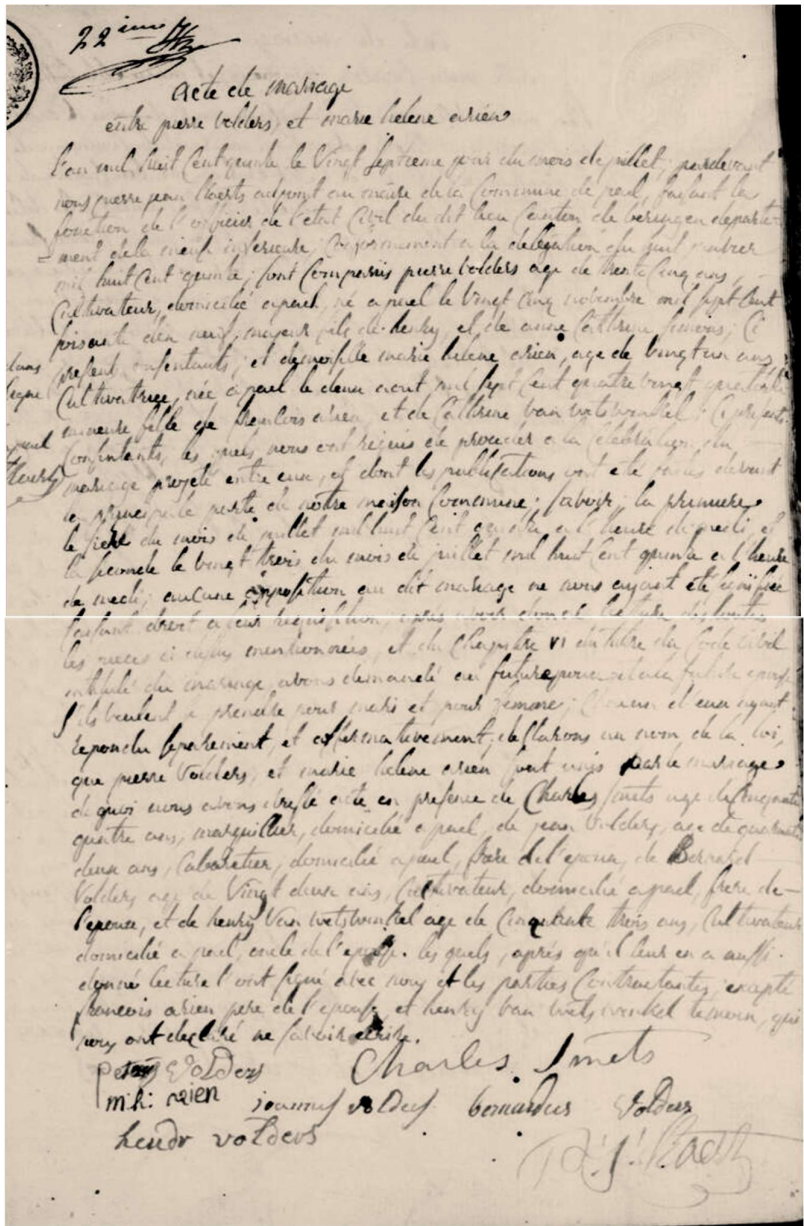 22 ième
acte de mariage
entre pierre volders, et marie helene arien
l'an mil huit cent quinze le vingt septieme jour du mois de juillet, pardevant
nous pierre jean adjoint au maire de la Commune de pael, faisant la
fonction de l'officier de l'etat Civil du dit lieu Canton de beringen departe-
ment de la meuse inferieure, Conformement a la délégation du huit
mil huit Cent quinze, sont Comparus pierre volders age de trente Cinq ans,
Cultivateur, domicilié a pael, né a pael le vingt cinq novembre mil sept Cent
soixante dix neuf, majeur fils de henry et de anne Cathrine Ci
present Consentants, et demoiselle marie helene arien, age de vingt un ans
Cultivatrice, née a pael le deux aout mil sept Cent quatre vingt quatorze
mineure fille de francois arien et de Cathrine van wetswinkel Ci presents
Consentants, les quels nous ont requis de proceder a la Célébration du
mariage projeté entre eux, et dont les publications ont eté faites devant
la principale porte de nôtre maison Commune; savoir; la premiere
le du mois de juillet mil huit Cent quinze a l'heure de medi, et
la seconde le vingt trois du mois de juillet mil huit Cent quinze a l'heure
de medi; aucune opposition au dit mariage ne nous ayant eté signifiée
faisant droit a leur requisition, apres avoir donné lecture de toutes
les pieces ci dessus mentionnées, et du Chapitre VI du titre du Code Civil
intitulé du mariage, avons demandé au futur epoux et a la future epouse
s'ils veulent se prendre pour mari et pour femme; Chacun d'eux ayant
repondu separement, et affirmativement, declarons au nom de la loi,
que pierre volders, et marie helene arien sont unis par le mariage
de quoi nous avons dressé acte en presence de Charles smets age de Cinquante
quatre ans, marguillier, domicilié a pael, de jean volders, age de quarante
deux ans, Cabaretier, domicilié a pael, frere de l'epoux, de Bernard
volders age de vingt deux ans, Cultivateur, domicilié a pael, frere de
l'epoux, et de henry van wetswinkel age de Cinquante trois ans, Cultivateur
domicilié a pael, oncle de l'epouse. les quels, aprés qu'il leur en a aussi
donné lecture l'ont signé avec nous et les parties Contractantes, excepté
francois arien pere de l'epouse et henry van wetswinkel temoin, qui
nous ont declaré ne savoir ecrire.
volders Charles Smets
m.h: arien joannes volders bernardus volders
hendr volders